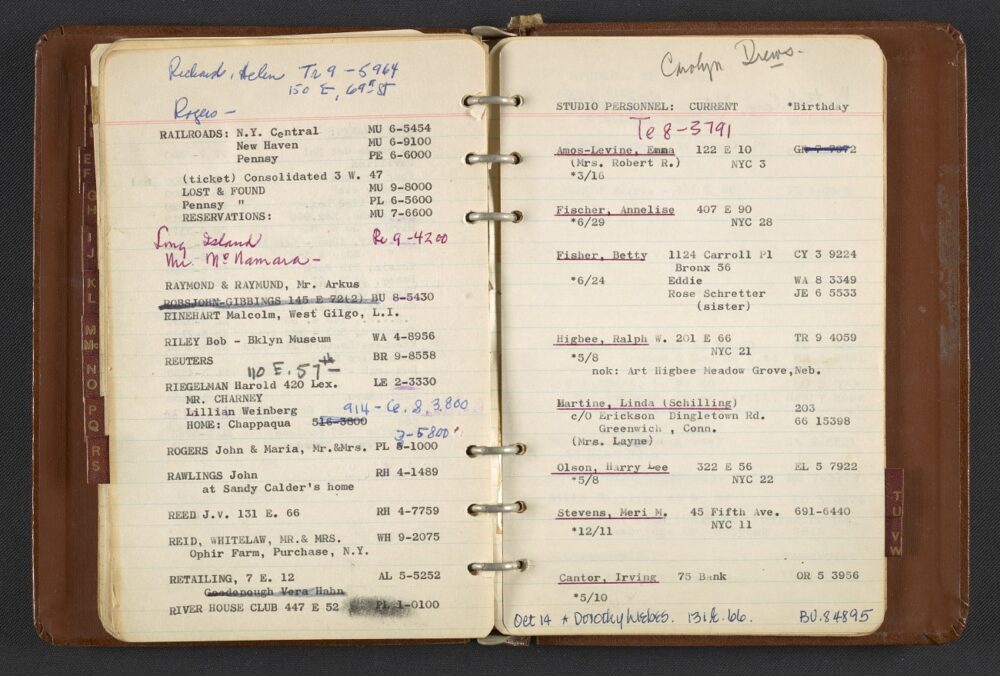 Richard, Helen Tr 9-5964
150 E. 69th St
Rogers -
RAILROADS: N.Y. Central MU 6-5454
New Haven MU 6-9100
Pennsy PE 6-6000
(ticket) Consolidated 3 W. 47
LOST & FOUND MU 9-8000
Pennsy " PL 6-5600
RESERVATIONS: MU 7-6600
Long Island Re. 9-4200
Mr. McNamara -
RAYMOND & RAYMUND, Mr. Arkus
ROBSJOHN-GIBBINGS 145 E 72(2) BU 8-5430
RINEHART Malcolm, West Gilgo, L.I.
RILEY Bob - Bklyn Museum WA 4-8956
REUTERS BR 9-8558
110 E. 57th
RIEGELMAN Harold 420 Lex. LE 2-3330
MR. CHARNEY
Lillian Weinberg 914-Ce. 8, 3,800
HOME: Chappaqua 516-3800
3-5800
ROGERS John & Maria, Mr.&Mrs. PL 8-1000
RAWLINGS John RH 4-1489
at Sandy Calder's home
REED J.V. 131 E. 66 RH 4-7759
REID, WHITELAW, MR.& MRS. WH 9-2075
Ophir Farm, Purchase, N.Y.
RETAILING, 7 E. 12 AL 5-5252
Goodenough Vera Hahn
RIVER HOUSE CLUB 447 E 52 PL 1-0100
E
F
G
H
I
J
K
L
M
Mc
N
O
P
Q
R
S
Carolyn Drews-
STUDIO PERSONNEL: CURRENT *Birthday
Te 8-3791
Amos-Levine, Emma 122 E 10
(Mrs. Robert R.) NYC 3
*3/16
Fischer, Annelise 407 E 90
*6/29 NYC 28
Fisher, Betty 1124 Carroll Pl CY 3 9224
Bronx 56
*6/24 Eddie WA 8 3349
Rose Schretter JE 6 5533
(sister)
Higbee, Ralph W. 201 E 66 TR 9 4059
*5/8 NYC 21
nok: Art Higbee Meadow Grove,Neb.
Martine, Linda (Schilling) 203
c/o Erickson Dingletown Rd. 66 15398
Greenwich , Conn.
(Mrs. Layne)
Olson, Harry Lee 322 E 56 EL 5 7922
*5/8 NYC 22
Stevens, Meri M. 45 Fifth Ave. 691-6440
*12/11 NYC 11
Cantor, Irving 75 Bank OR 5 3956
*5/10
Oct 14 * Dorothy Liebes. 131 E. 66. BU. 84895
T
U
VW